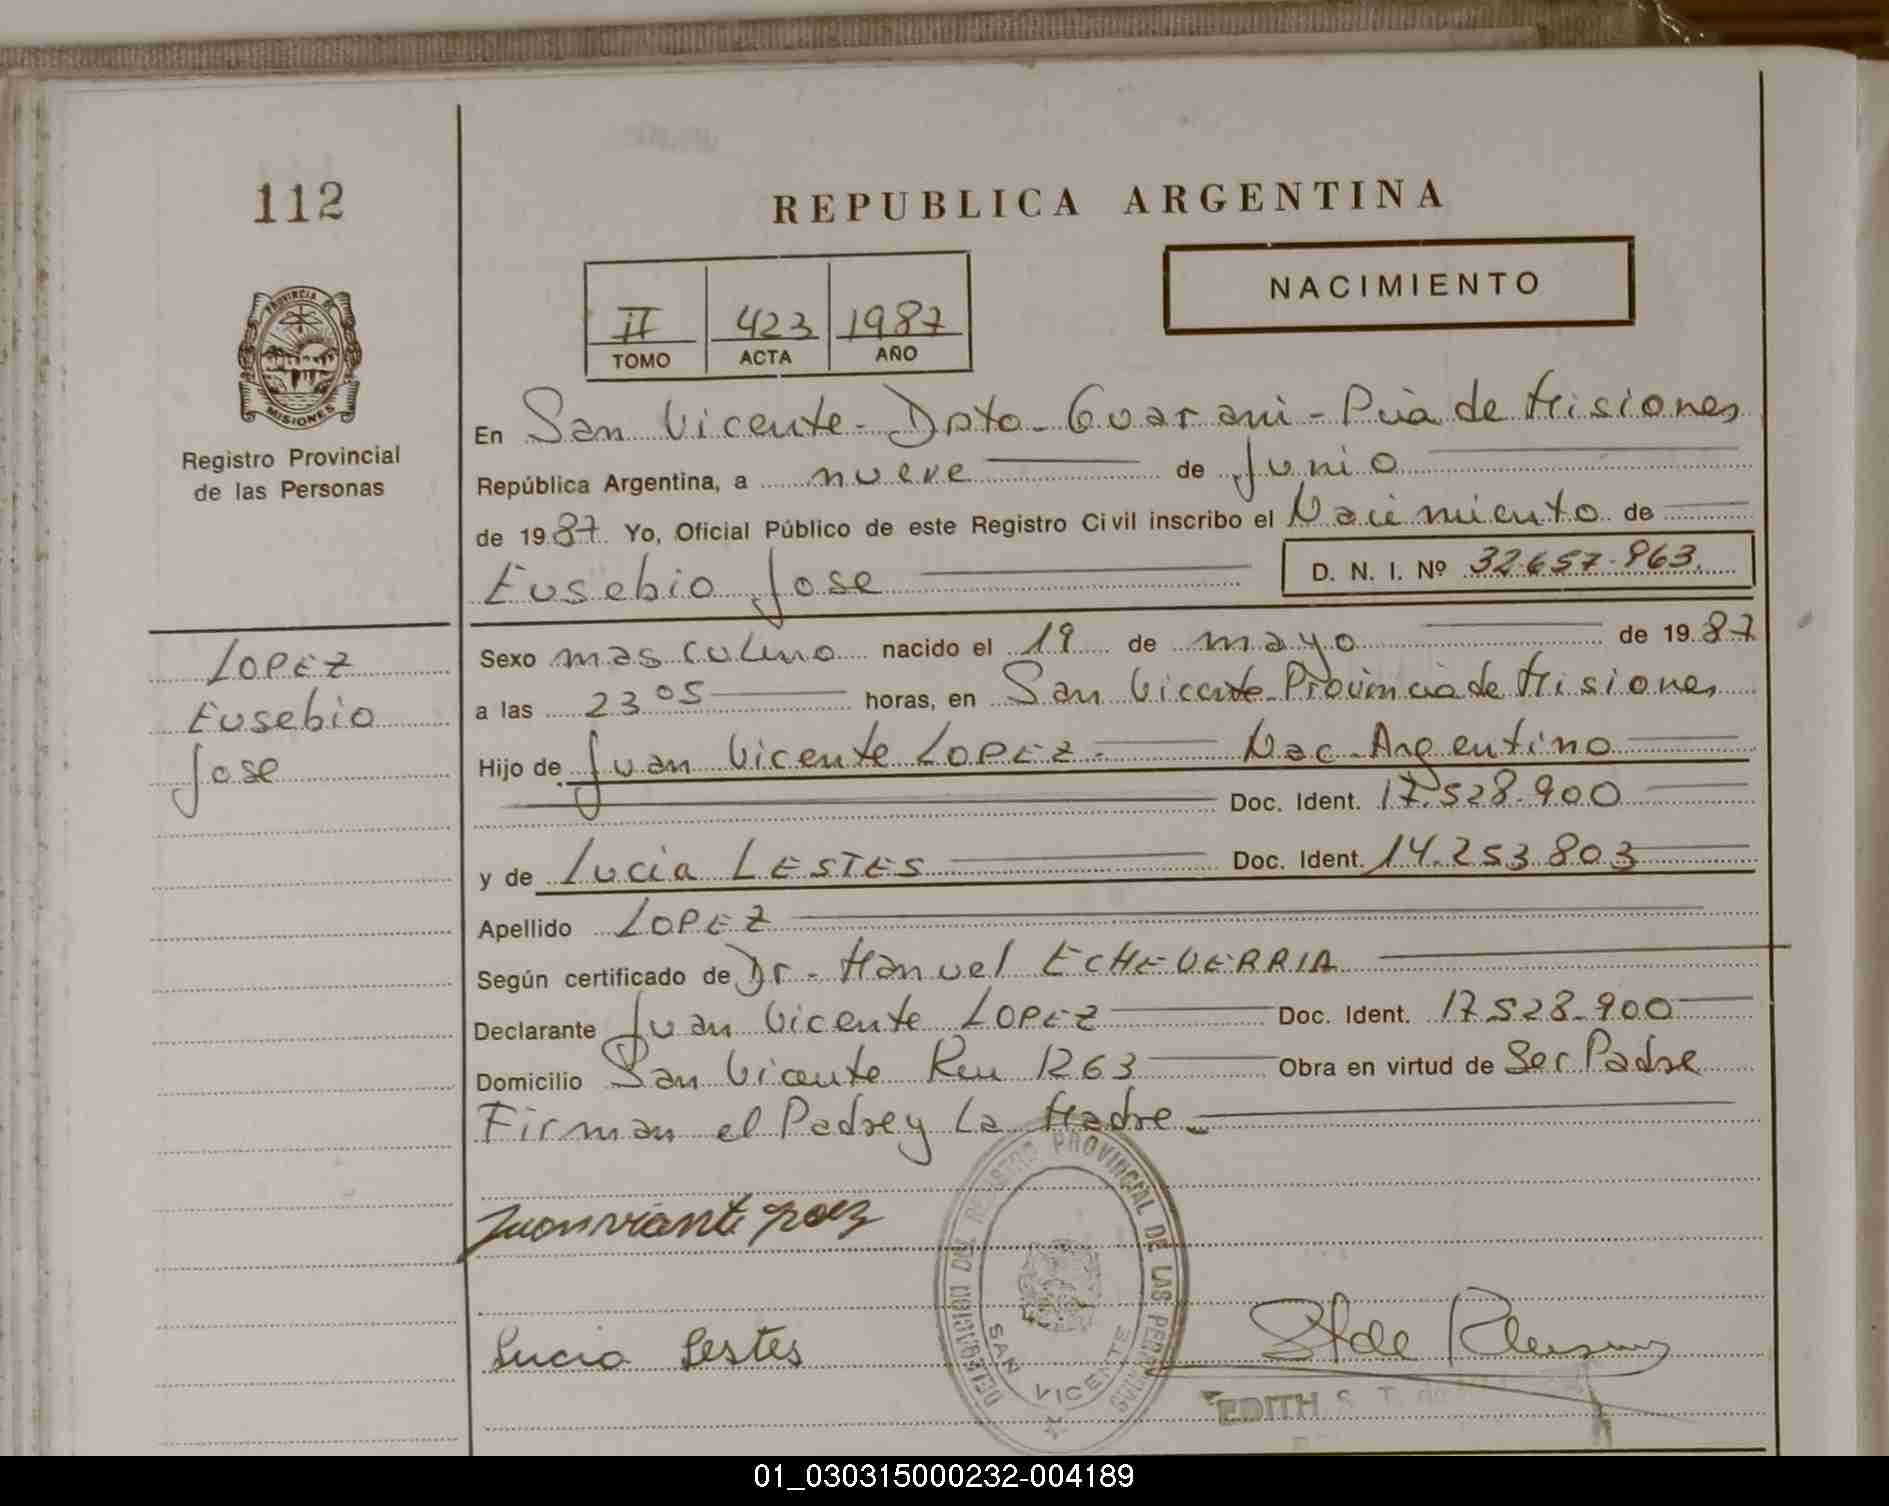 112
REPUBLICA ARGENTINA
NACIMIENTO
II 423 1987
TOMO ACTA AÑO
PROVINCIA DE
MISIONES
Registro Provincial
de las Personas
En San Vicente - Dpto - Guarani - Pcia de Misiones
República Argentina, a nueve de Junio
de 1987 Yo, Oficial Público de este Registro Civil inscribo el Nacimiento de
Eusebio Jose D. N. I. Nº 32.657.963.
LOPEZ
Eusebio
Jose
Sexo masculino nacido el 19 de mayo de 1987
a las 23 05 horas, en San Vicente - Provincia de Misiones
Hijo de Juan Vicente LOPEZ - Nac - Argentino
Doc. Ident. 17.528.900
y de Lucia LESTES Doc. Ident. 14.253.803
Apellido LOPEZ
Según certificado de Dr - Manuel ECHEVERRIA
Declarante Juan Vicente LOPEZ Doc. Ident. 17.528.900
Domicilio San Vicente 1263 Obra en virtud de Ser Padre
Firman el Padre y La Madre -
Lucia Lestes
DELEGACION DEL REGISTRO PROVINCIAL DE LAS PERSONAS
SAN VICENTE
EDITH S. T. de
01_030315000232-004189